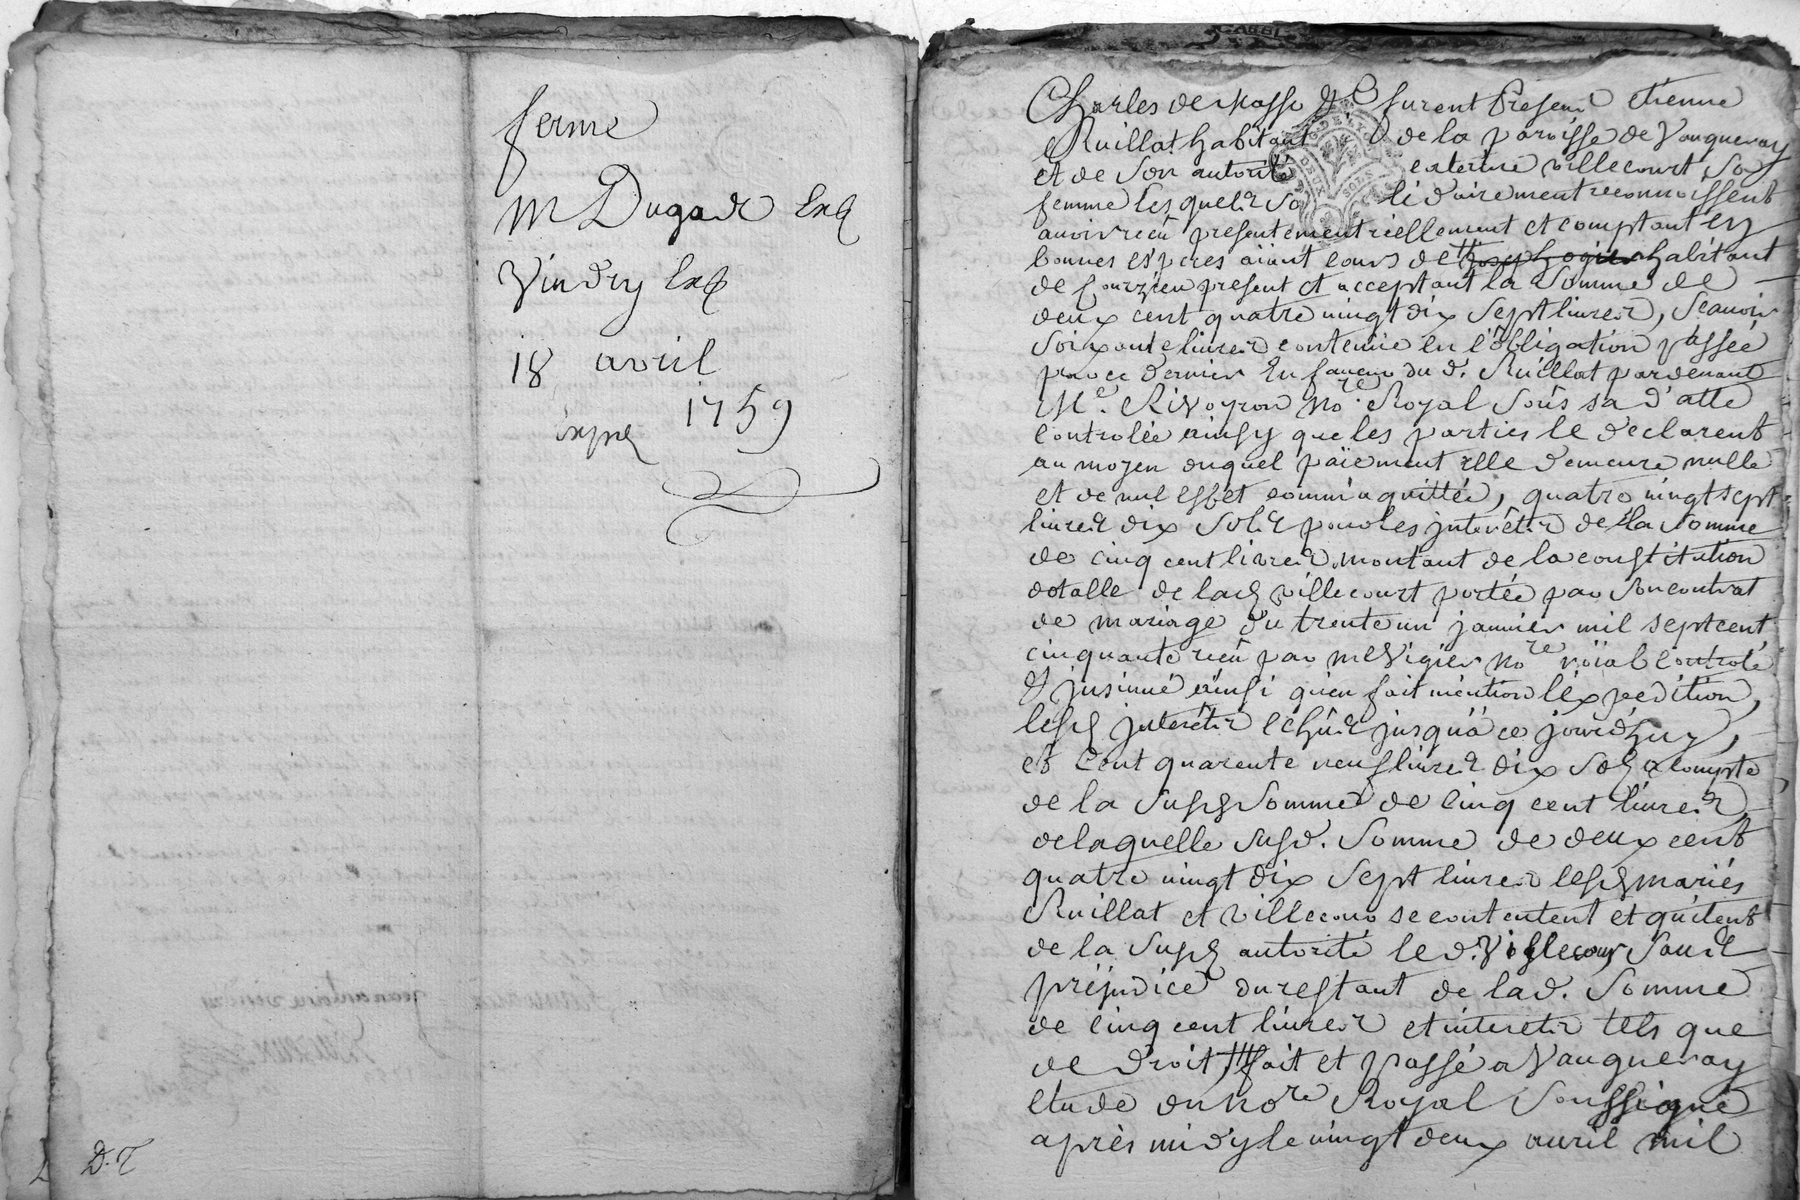 ferme
M Dugad Exp
Vindry Exp
18 avril
1759
expn
D. T
Charles de Masso &c furent Present etienne
Ruillat habitant de la paroisse de Vaugneray
et de Son autorité caterine villecourt Sa
femme lesquels So lidairement reconnoissent
avoir reçu presentement réellement et comptant en
bonnes espèces aïant cours de habitant
de Courzieu present et acceptant la Somme de
deux cent quatre vingt dix Sept livres, Scavoir
Soixante livres contenüe en l'obligation passée
par ce dernier En faveur du d. Ruillat pardevant
Me. Rivoyron nore. Royal Sous sa d'atte
controlée ainsy que les parties le declarent
au moyen duquel païement elle demeure nulle
et de nul effet comm'aquittée, quatre vingt sept
livres dix Sols pour les jnterêts de la Somme
de cinq cent livres montant de la constitution
dotalle de lad villecourt portée par Son contrat
de mariage du trente un janvier mil sept cent
cinquante reçû par me Vigier Nore roïal controlé
& jnsinué ainsi qu'en fait mention l'expedition,
lesd jnterêts echûs jusqu'a ce jourd'huy,
et Cent quarente neuf livres dix Sols a compte
de la Susd Somme de Cinq cent livres
de laquelle Susd. Somme de deux cent
quatre vingt dix Sept livres lesd mariés
Ruillat et villecour se contentent et quitent
de la Susd autorité le d. Villecour Sans
préjudice du restant de lad. Somme
de Cinq cent livres et interets tels que
de droit, fait et passé a Vaugneray
etude du nore Royal Soussigné
après midy le vingt deux avril mil